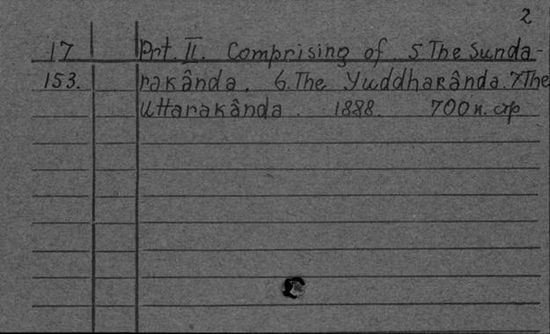 2
17 Prt. II. Comprising of 5 The Sunda-
153. rakânda. 6. The Yuddhakânda. 7 The
Uttarakânda. 1888. 700 n. стр